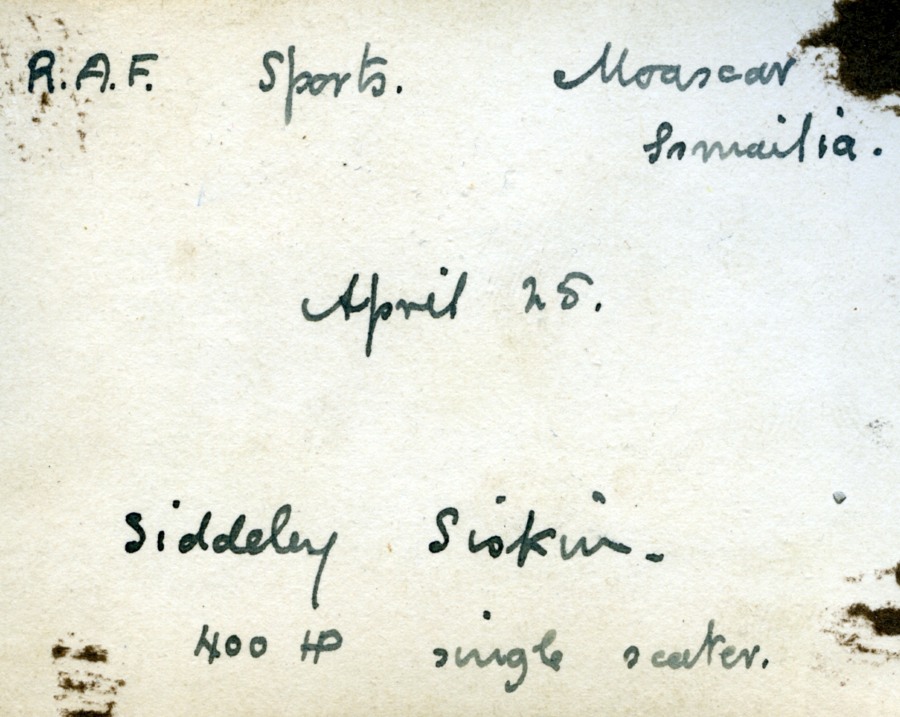 R.A.F. Sports. Moascar
Ismailia.
April 25.
Siddeley Siskin -
400 HP single seater.